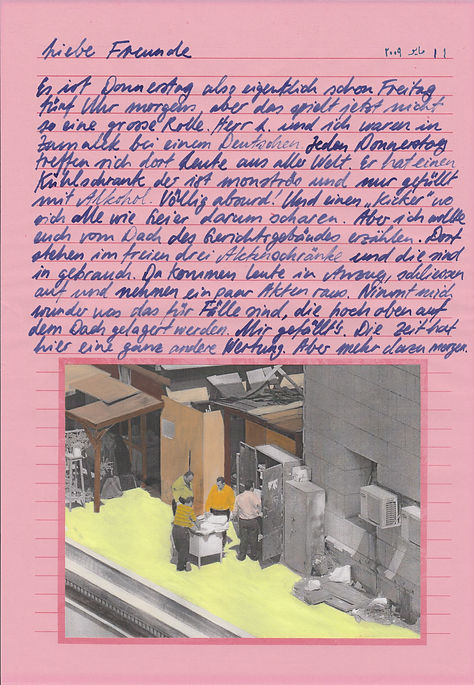 Liebe Freunde ١١ مايو ٢٠٠٩
Es ist Donnerstag also eigentlich schon Freitag
fünf Uhr morgens, aber das spielt jetzt nicht
so eine grosse Rolle. Herr L. und ich waren in
Zamalek bei einem Deutschen Jeden Donnerstag
treffen sich dort Leute aus aller Welt. Er hat einen
Kühlschrank der ist monströs und nur gefüllt
mit Alkohol. Völlig absurd! Und einen „Kicker" wo
sich alle wie Geier darum scharen. Aber ich wollte
euch vom Dach des Gerichtsgebäudes erzählen. Dort
stehen im freien drei Aktenschränke und die sind
in gebrauch. Da kommen Leute in Anzug, schliessen
auf und nehmen ein paar Akten raus. Nimmt mich
wunder was das für Fälle sind, die hoch oben auf
dem Dach gelagert werden. Mir gefällt's. Die Zeit hat
hier eine ganz andere Wertung. Aber mehr dazu morgen.